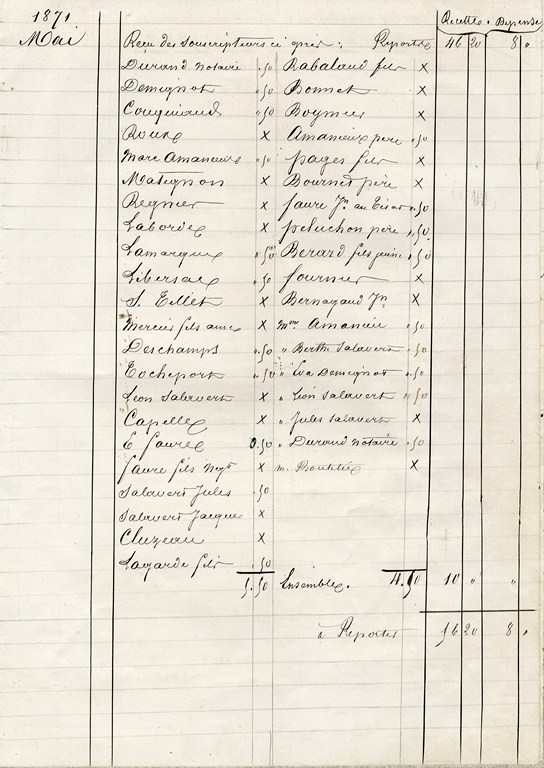 1871 Recettes Dépenses
Mai Reçu des souscripteurs ci après : Report 46 20 8 "
Durand notaire .50 Rabalaud fils X
Demignot .50 Bonnet X
Couquiaud .50 Boymier X
Roux X Amanieux père .50
Marc Amanieux .50 Pages fils X
Matignon X Bournet père X
Regnier X faure Jne au Trésor .50
Laborde X peluchon père .50
Lamarque .50 Berard fils jeune .50
Libersac .50 fournier X
S. Tillet X Bernagaud Jn X
Mercier fils ainé X Mme Amanieu .50
Deschamps .50 " Berthe Salavert .50
Rocheport .50 " Eva Demignot .50
Léon Salavert X " Léon Salavert .50
Capelle X " Jules Salavert X
E faure 0.50 " Durand notaire .50
faure fils Negt X m. X
Salavert Jules .50
Salavert Jacques X
Cluzeau X
Lagarde fils .50
5.50 Ensemble. 4.50 10 " "
à Reporter 56 20 8 "